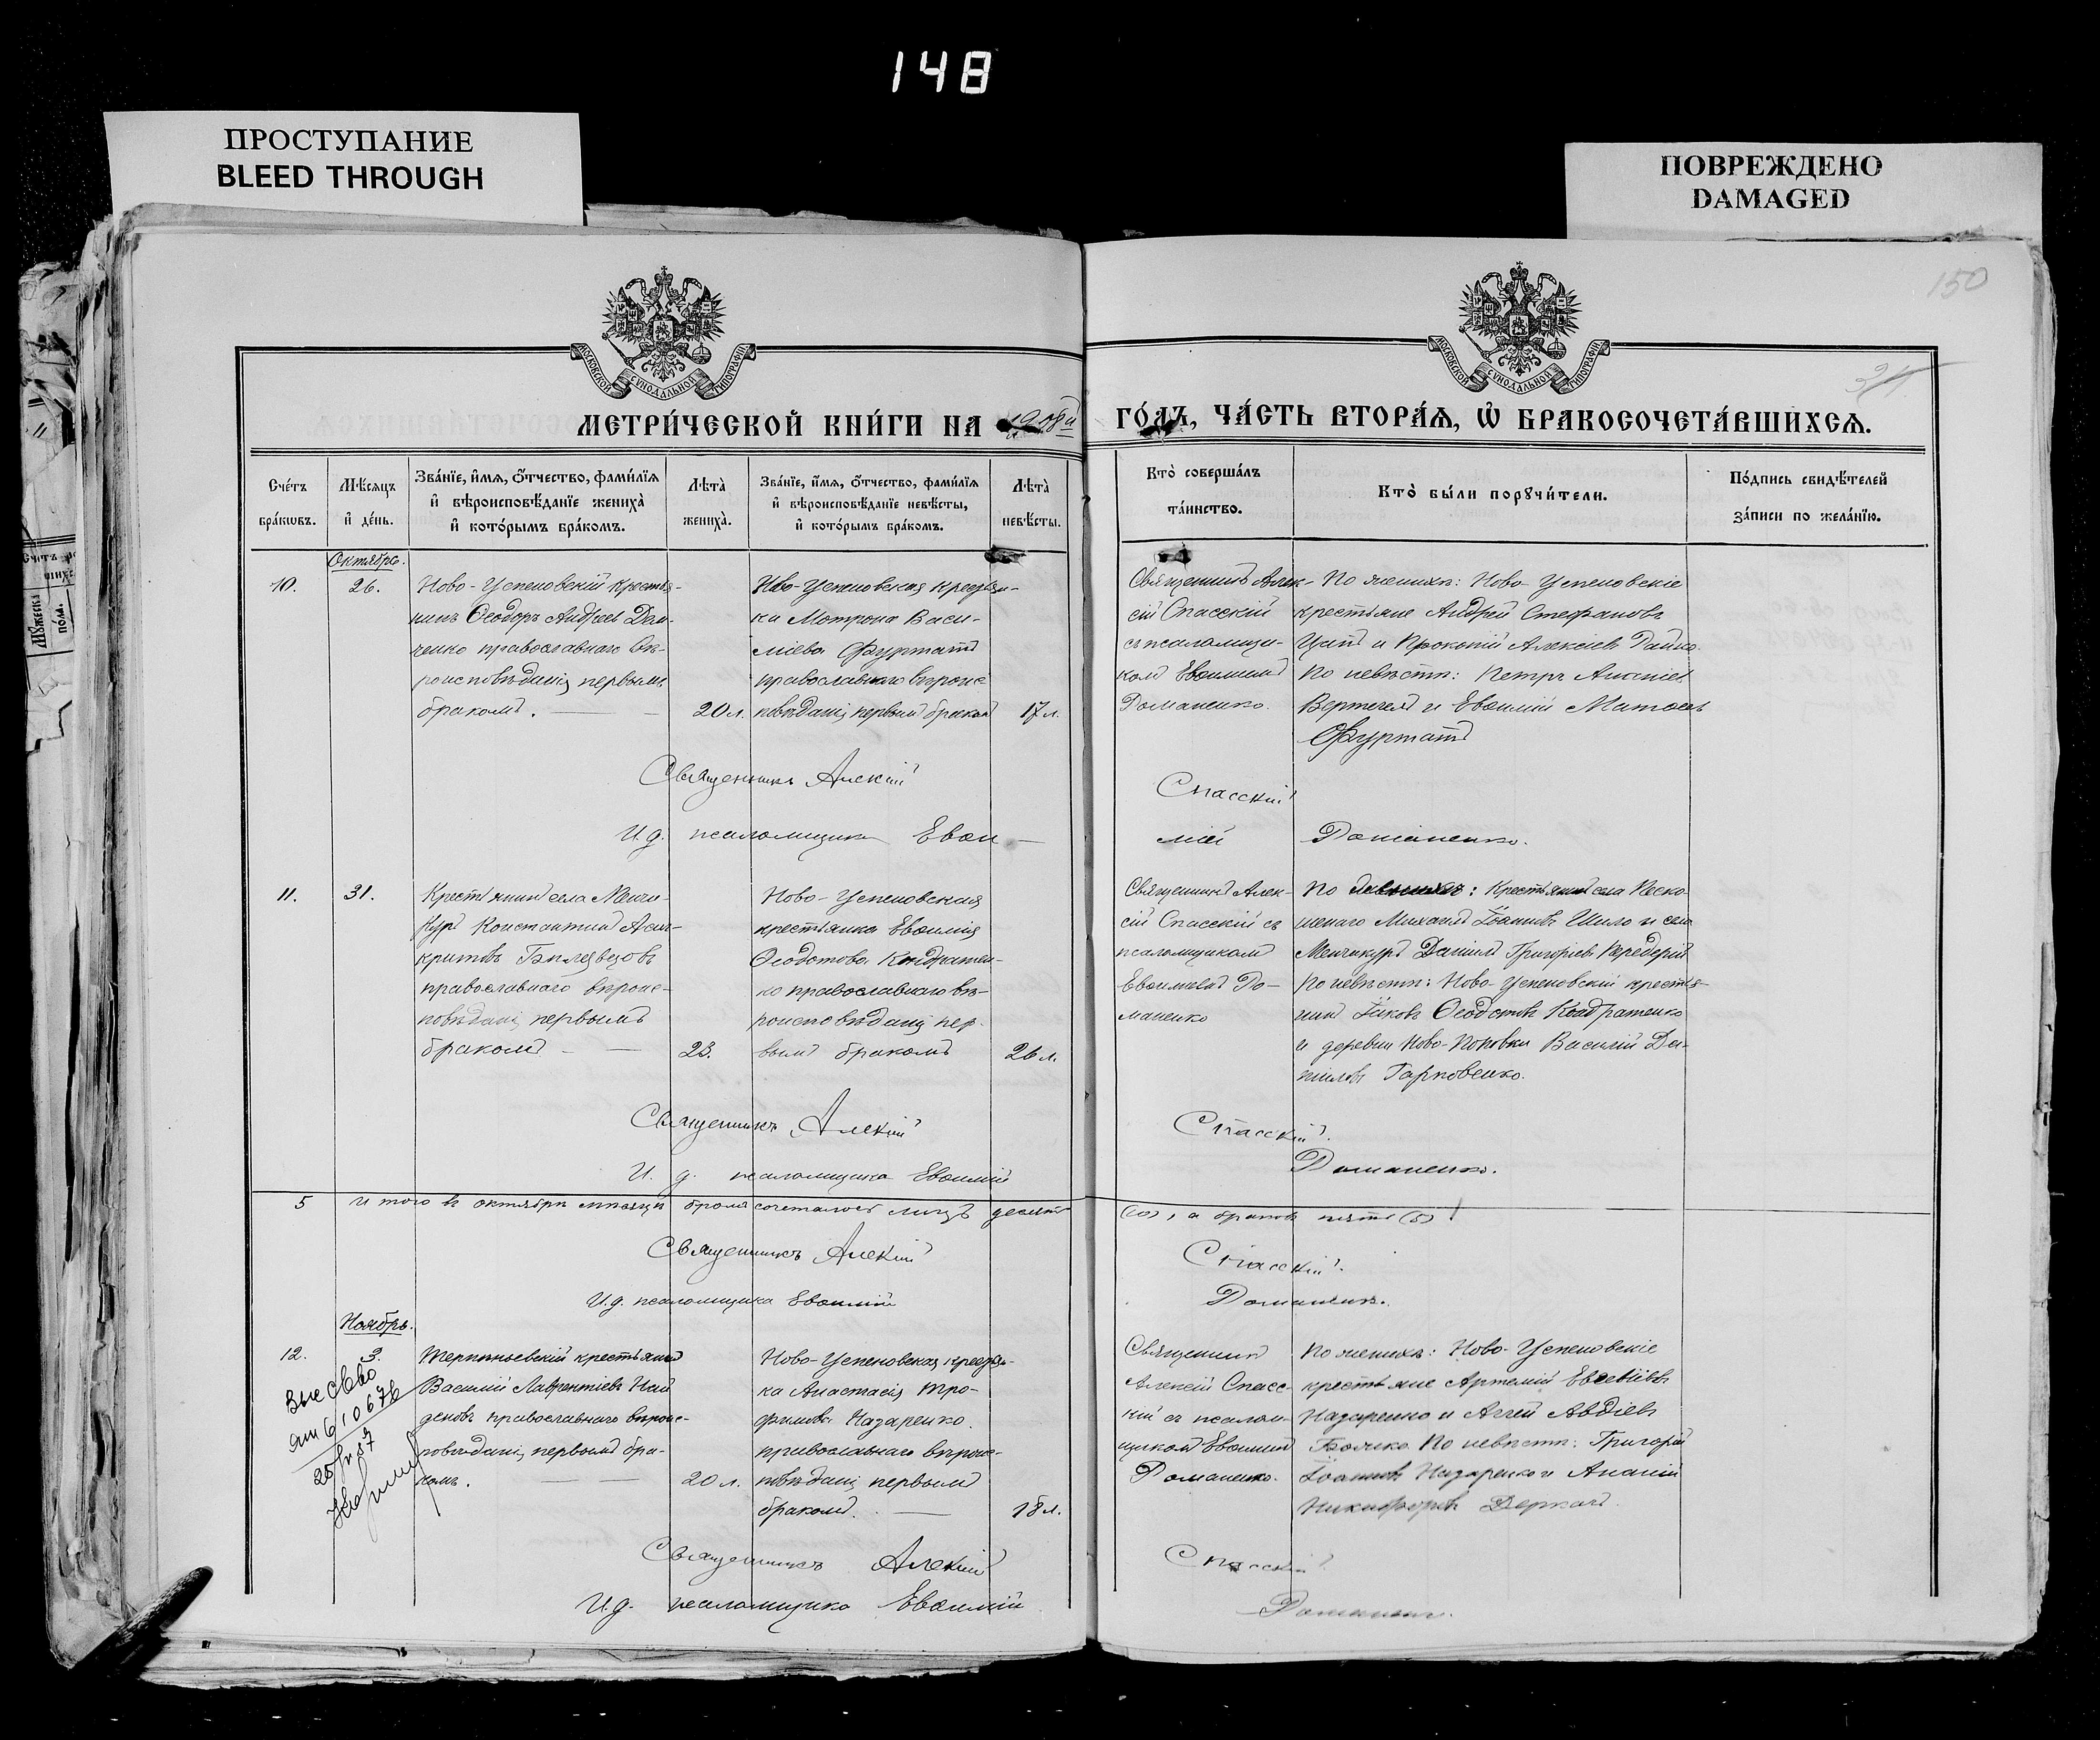 148
ПРОСТУПАНИЕ
BLEED THROUGH
ПОВРЕЖДЕНО
DAMAGED
150
31
МОСКОВСКОЙ СѴНОДАЛЬНОЙ ТИПОГРАФІИ
МОСКОВСКОЙ СѴНОДАЛЬНОЙ ТИПОГРАФІИ
МЕТРИ́ЧЕСКОЙ КНИ́ГИ НА 1908й ГО́ДЪ, ЧА́СТЬ ВТОРА́Ѧ, Ѡ БРАКОСОЧЕТА́ВШИХСѦ.
Сче́тъ бра́кѡвъ.
Мѣ́сѧцъ и҆ де́нь.
Зва́нїе, и҆́мѧ, ѻ҆́тчество, фами́лїѧ
и҆ вѣроисповѣ́данїе жениха̀
и҆ кото́рымъ бра́комъ.
Лѣта̀ жениха̀.
Зва́нїе, и҆́мѧ, ѻ҆́тчество, фами́лїѧ
и҆ вѣроисповѣ́данїе невѣ́сты,
и҆ кото́рымъ бра́комъ.
Лѣта̀ невѣ́сты.
Кто̀ соверша́лъ
та́инство.
Кто̀ бы́ли порꙋчи́тели.
По́дпись свидѣ́телей
за́писи по жела́нїю.
Октябрь.
10.
26.
Ново-Успеновскій крестья-
нинъ Ѳеодоръ Андреевъ Дем-
ченко православнаго вѣ-
роисповѣданія первымъ
бракомъ.
20 л.
Ново-Успеновская крестьян-
ка Мотрона Васи-
ліева Фурматъ
православнаго вѣроис
повѣданія первымъ бракомъ
17 л.
Священникъ Алек-
сій Спасскій
съ псаломщи-
комъ Евѳиміемъ
Доманенко.
По женихѣ: Ново Успеновскіе
крестьяне Андрей Стефановъ
и Прокопій Алексіевъ
По невѣстѣ: Петръ
и Евѳимій Матѳеевъ
Фурматъ
Священникъ Алексій Спасскій
И.д. псаломщика Евѳи-
мій Доманенко.
11.
31.
Крестьянинъ села Менчи-
куръ Константинъ Асин-
критовъ
православнаго вѣроис-
повѣданія первымъ
бракомъ
23.
Ново-Успеновская
крестьянка Евѳимія
Ѳеодотова Кондратен-
ко православнаго вѣ-
роисповѣданія пер-
вымъ бракомъ
26 л.
Священникъ Алек-
сій Спасскій съ
псаломщикомъ
Евѳиміемъ До-
маненко
По женихѣ: Крестьянинъ села Песко-
шенаго Михаилъ Іоанновъ Шило и села
Менчикуръ Даніилъ Григоріевъ Передерій
По невѣстѣ: Ново-Успеновскій крестья-
нинъ Іаковъ Ѳеодотовъ Кондратенко
и деревни Ново-Поповки Василій Да-
ніиловъ Гарковенко.
Священникъ Алексій Спасскій.
И. д. псаломщика Евѳимій Доманенко.
5 Итого въ октябрѣ мѣсяцѣ бракосочеталось лицъ десять (10), а браковъ пять (5)
Священникъ Алексій Спасскій.
И.д. псаломщика Евѳимій Доманенко.
Ноябрь.
12.
3.
Терпеньевскій крестьянинъ
Василій Лаврентіевъ Най
деновъ православнаго вѣроис-
повѣданія первымъ бра-
комъ.
20 л.
Ново-Успеновская крестьян-
ка Анастасія Тро-
фимова Назаренко
православнаго вѣроис-
повѣданія первымъ
бракомъ.
18 л.
Священникъ
Алексій Спасс-
кій съ псалом-
щикомъ Евѳиміемъ
Доманенко.
По женихѣ: Ново-Успеновскіе
крестьяне Артемій Евсевіевъ
Назаренко и Аггей Авдіевъ
Божко. По невѣстѣ: Григорій
Іоанновъ Назаренко и Ананій
Никифоровъ Деркачъ.
Священникъ Алексій Спасскій
И.д. псаломщика Евѳимій Доманенко.